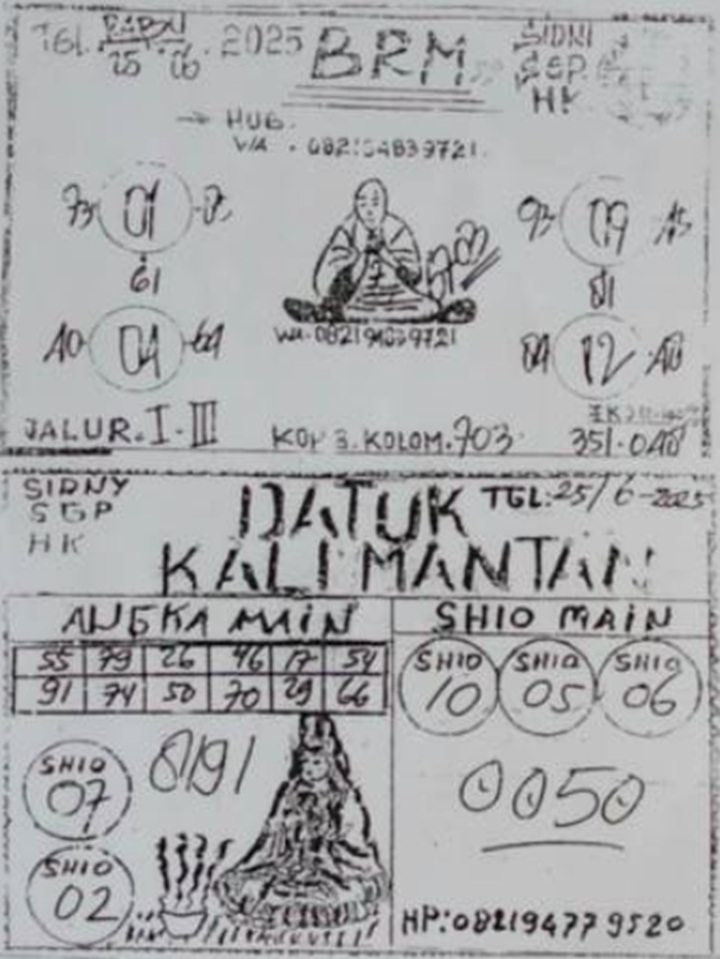 TGL. RABU 25.06.2025
BRM
SIDNI
SGP
HK
→ HUB.
WA. 082194839721
73 01 85
61
93 09 45
81
40 04 64
84 12 48
JALUR. I-III
KOP 3. KOLOM. 703
351.048
SIDNY
SGP
HK
DATUK
KALIMANTAN
TGL: 25/6-2025
ANGKA MAIN
55 79 26 46 17 54
91 74 50 70 29 66
SHIO MAIN
SHIO 10
SHIO 05
SHIO 06
SHIO 07
8191
0050
SHIO 02
HP: 082194779520